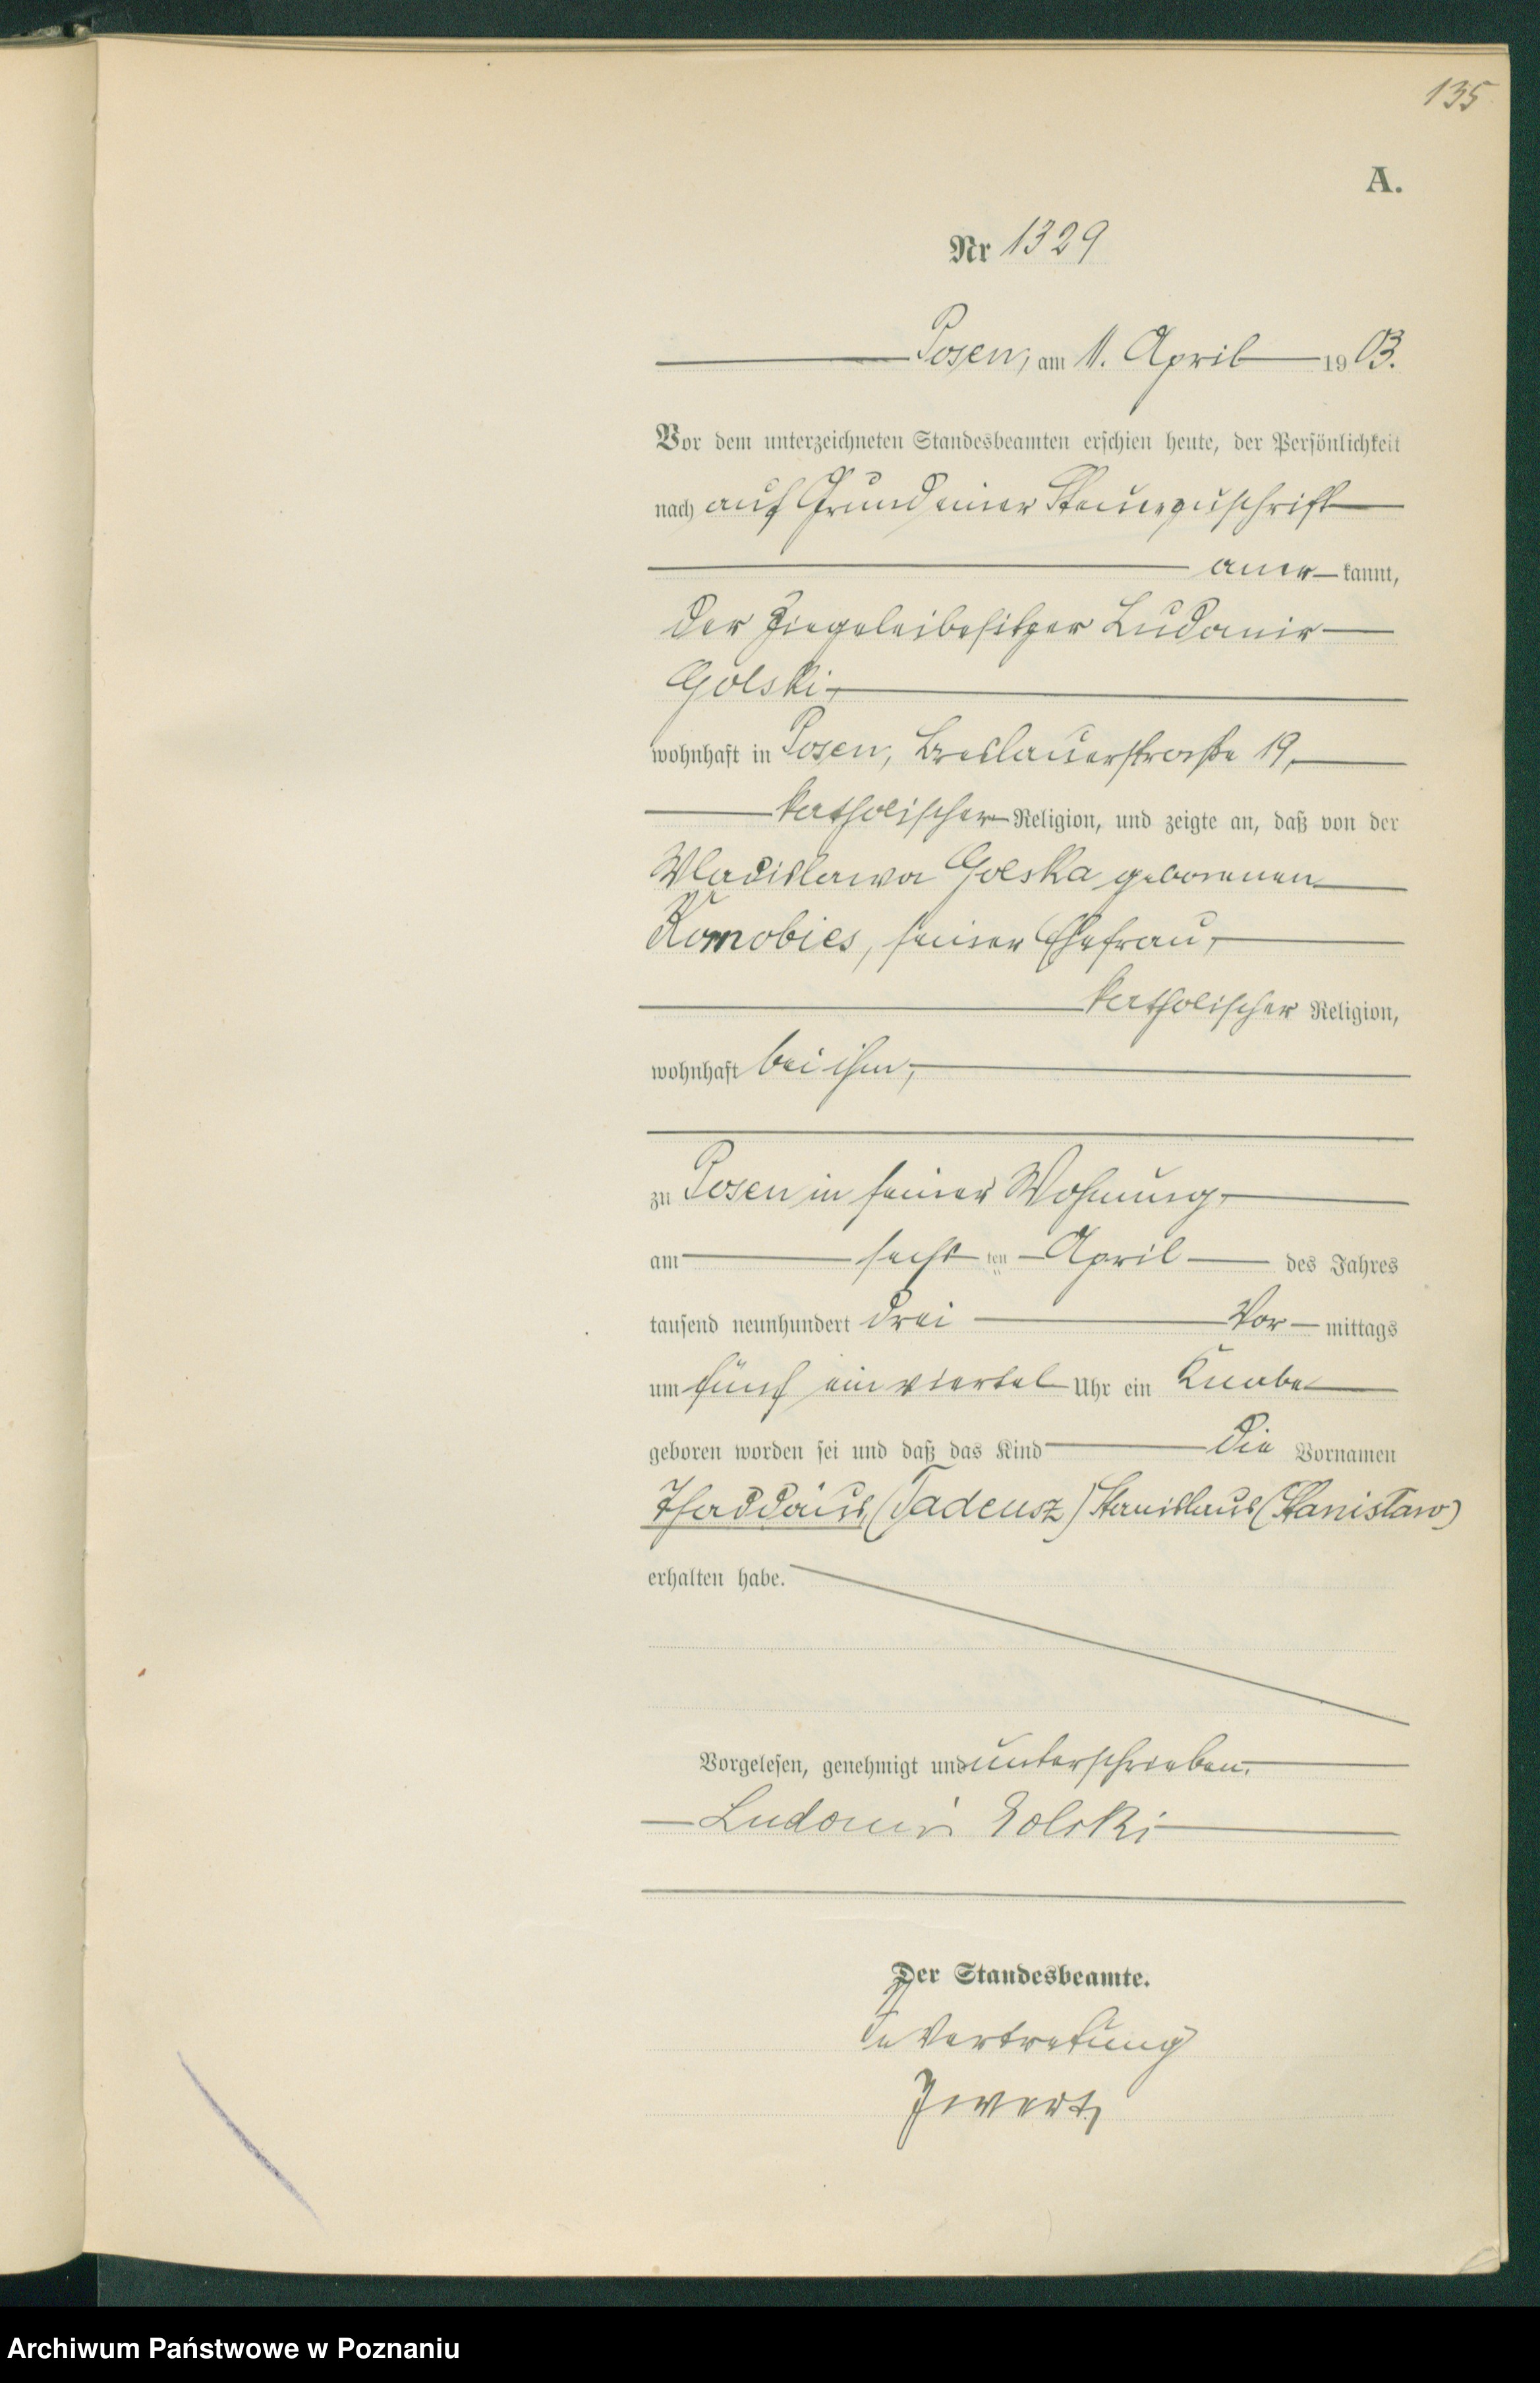 135
A.
Nr 1329
Posen, am 11. April 1903.
Vor dem unterzeichneten Standesbeamten erschien heute, der Persönlichkeit
nach auf Grund einer Steuerzuschrift
aner kannt,
der Ziegeleibesitzer Ludomir
Golski,
wohnhaft in Posen, Breslauerstraße 19,
katholischer Religion, und zeigte an, daß von der
Wladislawa Golska geborenen
seiner Ehefrau,
katholischer Religion,
wohnhaft bei ihm,
zu Posen in seiner Wohnung,
am sechsten April des Jahres
tausend neunhundert drei Vormittags
um fünf ein viertel Uhr ein Knabe
geboren worden sei und daß das Kind die Vornamen
Thaddäus (Tadeusz) Stanislaus (Stanisław)
erhalten habe.
Vorgelesen, genehmigt und unterschrieben.
Ludomir Golski
Der Standesbeamte.
In Vertretung
Archiwum Państwowe w Poznaniu